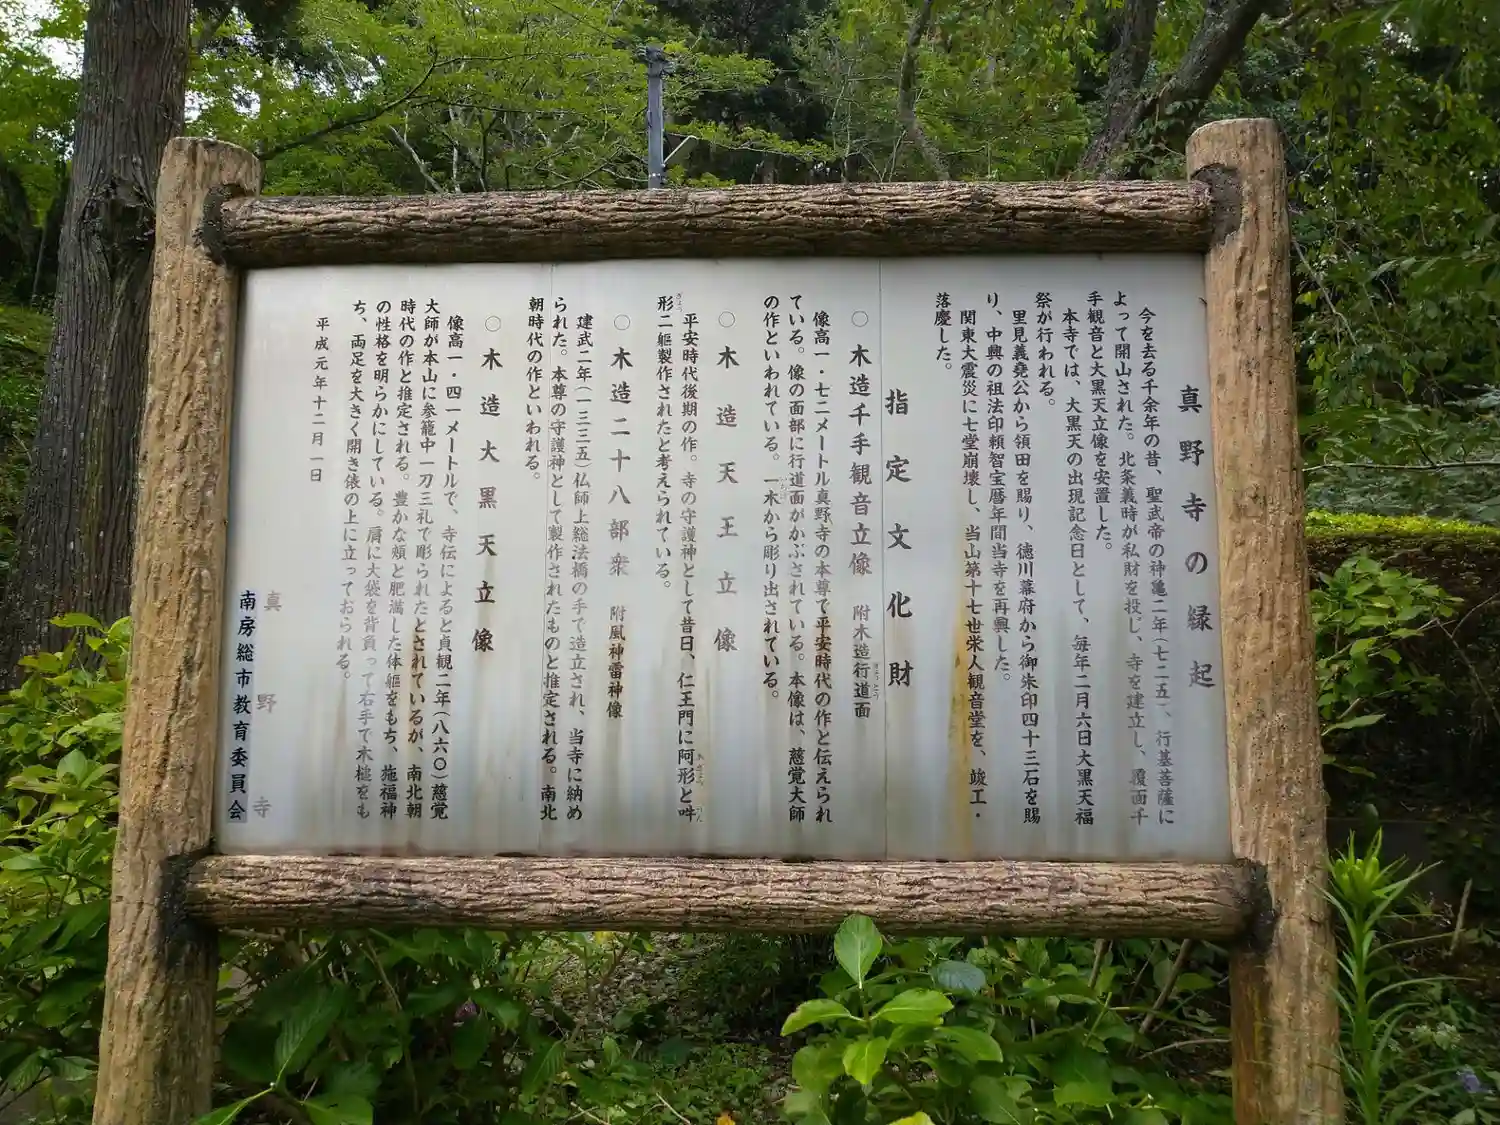 真野寺の縁起
今を去る千余年の昔、聖武帝の神亀二年(七二五)、行基菩薩に
よって開山された。北条義時が私財を投じ、寺を建立し、覆面千
手観音と大黒天立像を安置した。
本寺では、大黒天の出現記念日として、毎年二月六日大黒天福
祭が行われる。
里見義堯公から領田を賜り、徳川幕府から御朱印四十三石を賜
り、中興の祖法印頼智宝暦年間当寺を再興した。
関東大震災に七堂崩壊し、当山第十七世栄人観音堂を、竣工・
落慶した。
指定文化財
○木造千手観音立像 附木造行道面
ぎょうどう
像高一・七二メートル真野寺の本尊で平安時代の作と伝えられ
ている。像の面部に行道面がかぶされている。本像は、慈覚大師
の作といわれている。一木から彫り出されている。
○木造天王立像
平安時代後期の作。寺の守護神として昔日、仁王門に阿形と吽
形二躯製作されたと考えられている。
○木造二十八部衆 附風神雷神像
建武二年(一三三五)仏師上総法橋の手で造立され、当寺に納め
られた。本尊の守護神として製作されたものと推定される。南北
朝時代の作といわれる。
○木造大黒天立像
像高一・四一メートルで、寺伝によると貞観二年(八六〇)慈覚
大師が本山に参籠中一刀三礼で彫られたとされているが、南北朝
時代の作と推定される。豊かな頬と肥満した体躯をもち、施福神
の性格を明らかにしている。肩に大袋を背負って右手で木槌をも
ち、両足を大きく開き俵の上に立っておられる。
平成元年十二月一日
真野寺
南房総市教育委員会